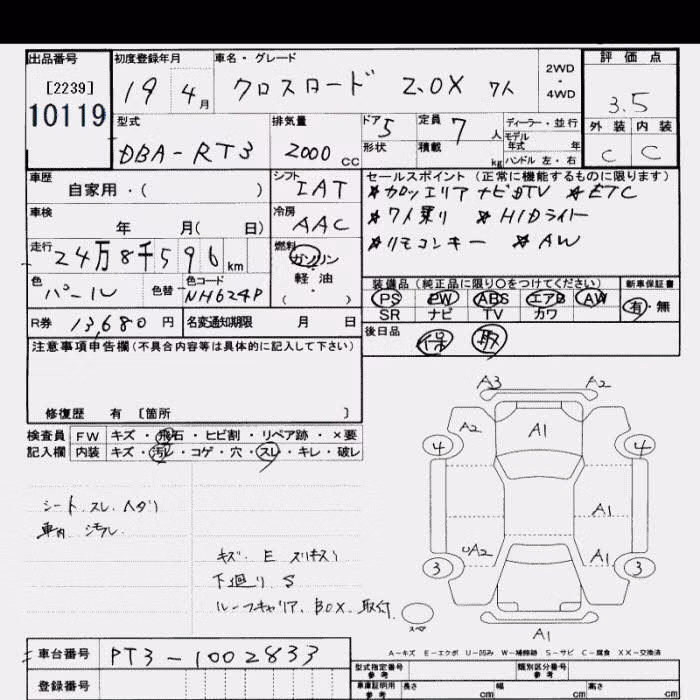 出品番号 初度登録年月 車名・グレード 2WD・4WD 評価点
[2239] 10119 19 4月 クロスロード 2.0X 7人 3.5
型式 排気量 ドア 5 定員 7人 ディーラー・並行 外装 内装
モデル年式 年
DBA-RT3 2000cc 形状 積載 kg ハンドル 左・右 C C
車歴 シフト IAT セールスポイント (正常に機能するものに限ります)
自家用・( ) ☆カロッエリア ナビDTV ☆ETC
車検 冷房 AAC ☆7人乗り ☆HIDライト
年 月( 日) ☆リモコンキー ☆AW
走行 24万8千596km 燃料 ガソリン・軽油・( )
色 パール 色替 色コード NH624P 装備品 (純正品に限り○をつけてください) 新車保証書
PS PW ABS エアB AW 有・無
SR ナビ TV カワ
R券 13,680円 名変通知期限 月 日 後日品 保 取
注意事項申告欄 (不具合内容等は具体的に記入して下さい)
修復歴 有 [箇所 ]
検査員記入欄 FW キズ・飛石・ヒビ割・リペア跡・×要
内装 キズ・汚レ・コゲ・穴・スレ・キレ・破レ
シート、スレ、ヘタリ
車内 汚レ
キズ E スリキズ
下廻り S
ルーフキャリア、BOX 取付
A3 A2
A2 A1
4 4
A1
UA2 A1
3 3
スペア
A1
A-キズ E-エクボ U-凹み W-補修跡 S-サビ C-腐食 XX-交換済
車台番号 RT3-1002833 型式指定番号 参考 類別区分番号 参考
登録番号 車庫証明用 参考 長さ cm 幅 cm 高さ cm